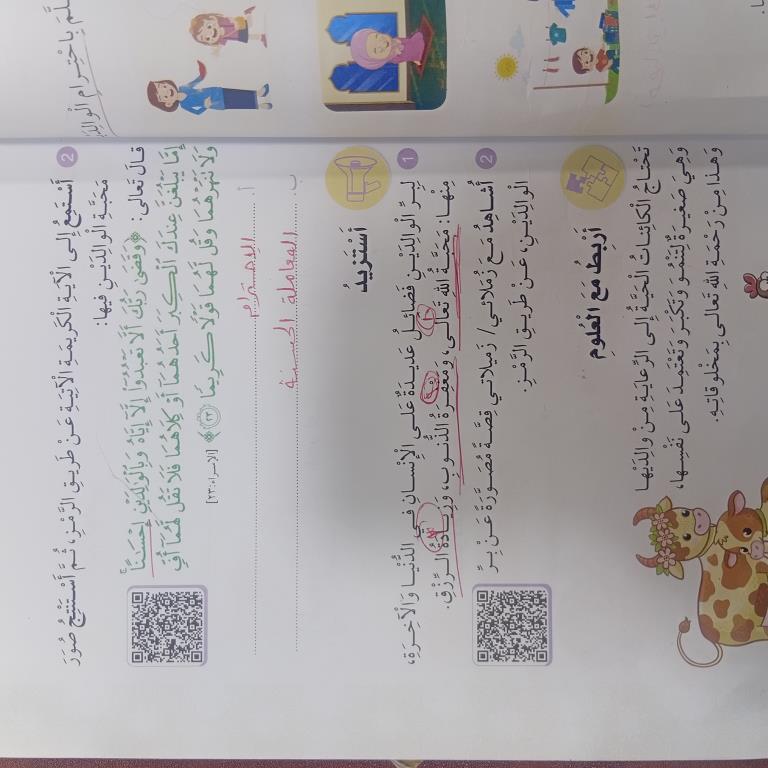 لَّمَ بِاحْتِرَامِ الْوَالِدَ
2 أَسْتَمِعُ إِلَى الْآيَةِ الْكَرِيمَةِ الْآتِيَةِ عَنْ طَرِيقِ الرَّمْزِ، ثُمَّ أَسْتَنْتِجُ صُوَرَ
مَحَبَّةِ الْوَالِدَيْنِ فِيهَا:
قَالَ تَعَالَى: ﴿وَقَضَىٰ رَبُّكَ أَلَّا تَعْبُدُوٓا۟ إِلَّآ إِيَّاهُ وَبِٱلْوَٰلِدَيْنِ إِحْسَٰنًا ۚ
إِمَّا يَبْلُغَنَّ عِندَكَ ٱلْكِبَرَ أَحَدُهُمَآ أَوْ كِلَاهُمَا فَلَا تَقُل لَّهُمَآ أُفٍّ
وَلَا تَنْهَرْهُمَا وَقُل لَّهُمَا قَوْلًا كَرِيمًا ﴿٢٣﴾﴾
[الإسراء: ٢٣]
أ. الاحترام
ب. المعاملة الحسنة
أَسْتَزِيدُ
1 لِبِرِّ الْوَالِدَيْنِ فَضَائِلُ عَدِيدَةٌ عَلَى الْإِنْسَانِ فِي الدُّنْيَا وَالْآخِرَةِ،
مِنْهَا: مَحَبَّةُ اللهِ تَعَالَى، وَمَغْفِرَةُ الذُّنُوبِ، وَزِيَادَةُ الرِّزْقِ.
2 أُشَاهِدُ مَعَ زُمَلَائِي/ زَمِيلَاتِي قِصَّةً مُصَوَّرَةً عَنْ بِرِّ
الْوَالِدَيْنِ، عَنْ طَرِيقِ الرَّمْزِ.
أَرْبِطُ مَعَ الْعُلُومِ
تَحْتَاجُ الْكَائِنَاتُ الْحَيَّةُ إِلَى الرِّعَايَةِ مِنْ وَالِدَيْهَا
وَهِيَ صَغِيرَةٌ لِتَنْمُوَ وَتَكْبُرَ وَتَعْتَمِدَ عَلَى نَفْسِهَا،
وَهَذَا مِنْ رَحْمَةِ اللهِ تَعَالَى بِمَخْلُوقَاتِهِ.